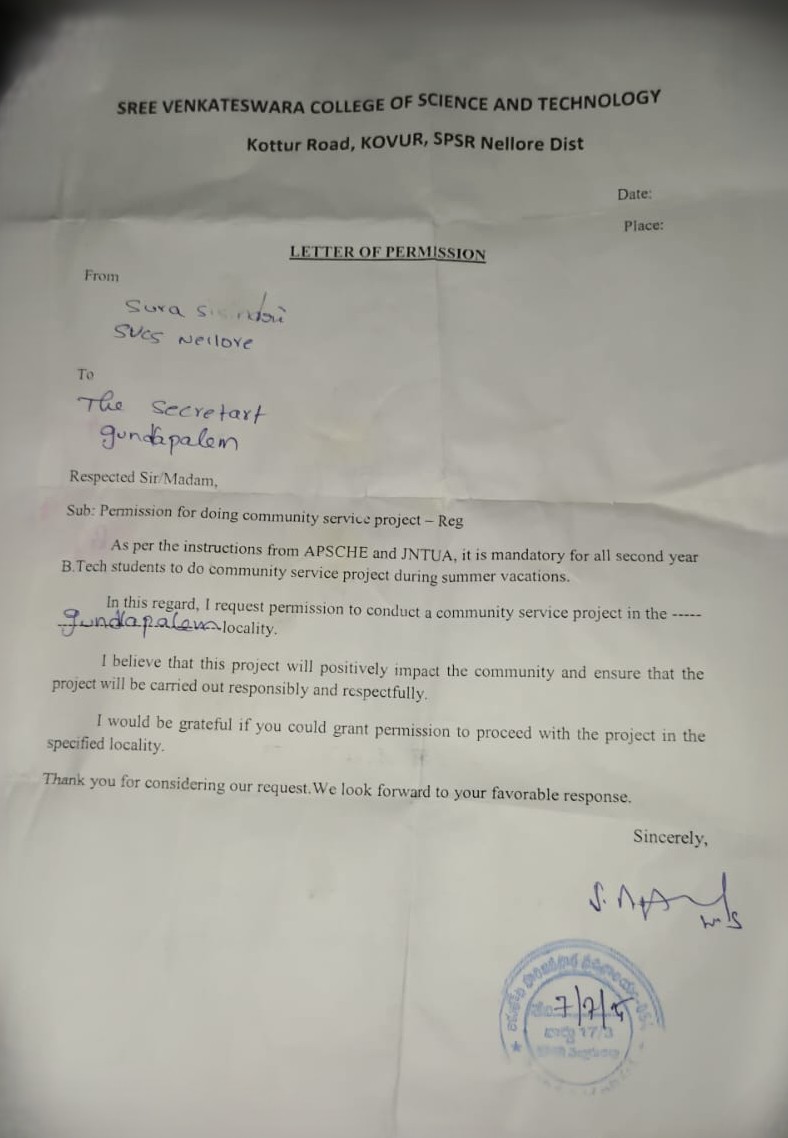 SREE VENKATESWARA COLLEGE OF SCIENCE AND TECHNOLOGY
Kottur Road, KOVUR, SPSR Nellore Dist
Date:
Place:
LETTER OF PERMISSION
From
Sura
SVCS Nellore
To
The Secretart
gundapalem
Respected Sir/Madam,
Sub: Permission for doing community service project – Reg
As per the instructions from APSCHE and JNTUA, it is mandatory for all second year
B.Tech students to do community service project during summer vacations.
In this regard, I request permission to conduct a community service project in the -----
gundlapalem locality.
I believe that this project will positively impact the community and ensure that the
project will be carried out responsibly and respectfully.
I would be grateful if you could grant permission to proceed with the project in the
specified locality.
Thank you for considering our request.We look forward to your favorable response.
Sincerely,
7/7/
17/3